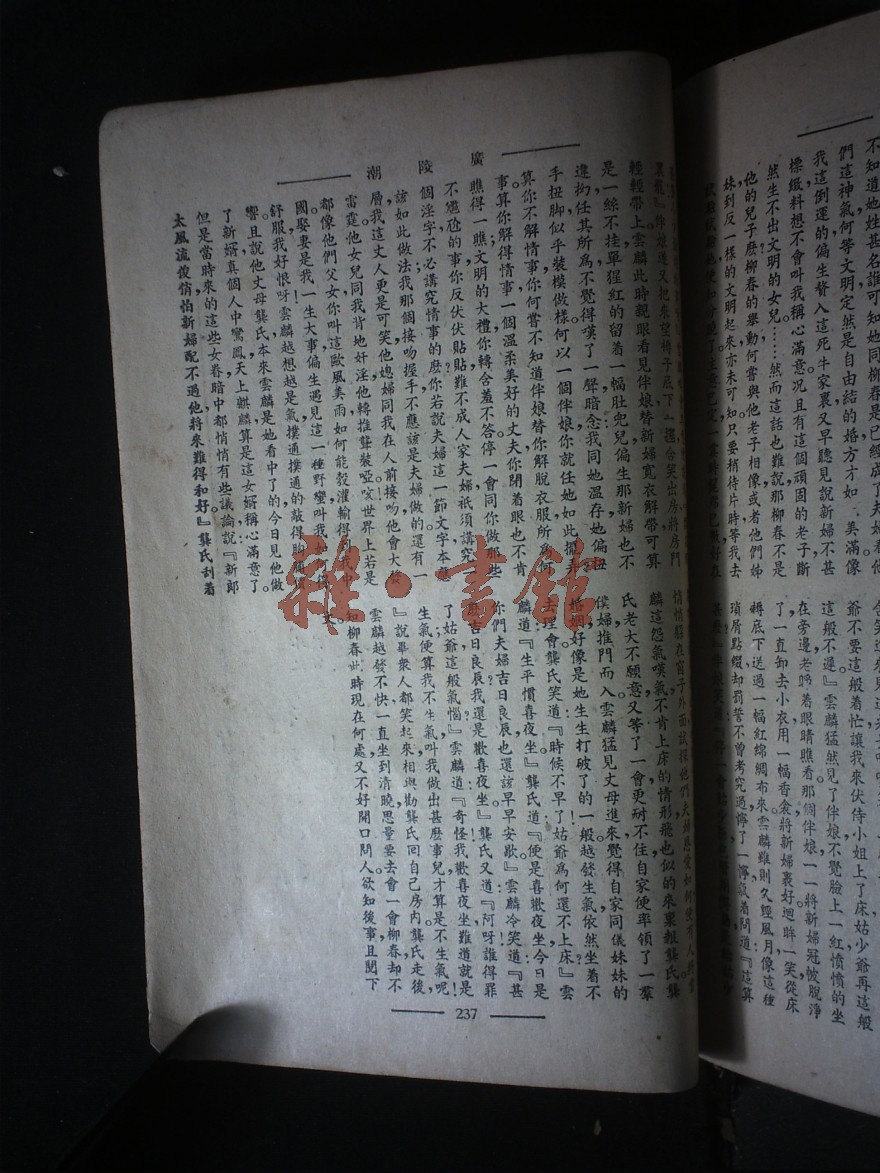 不知道她姓甚名誰可知她同柳春是已經成了夫
們這神氣何等文明定然是自由結的婚方才如美滿像
我這倒運的偏生贅入這死牛家裏又早聽見說新婦不甚
標緻料想不會叫我稱心滿意况且有這個頑固的老子斷
然生不出文明的女兒……然而這話也難說那柳春不是
他的兒子麽柳春的舉動何嘗與他老子相像或者他們姊
妹到反一樣的文明起來亦未可知只要稍待片時等我去
爺不要這般着忙讓我來伏侍小姐上了床姑少爺再這般
這般不遲』雲麟猛然見了伴娘不覺臉上一紅憤憤的坐
在旁邊老着眼睛瞧看那個伴娘一一將新婦冠帔脫淨
了一直卸去小衣用一幅香衾將新婦裹好迴眸一笑從床
褥底下送過一幅紅綿綢布來雲麟雖則久經風月像這種
瑣屑點綴却罰誓不曾考究過懧了一懧着問道『這算
廣陵潮
伴娘遂又把桌櫈椅子底下一擺含笑出房將房門
輕輕帶上雲麟此時親眼看見伴娘替新婦寬衣解帶可算
是一絲不挂單猩紅的留着一幅肚兜兒偏生那新婦也不
違拗任其所為不覺得嘆了一聲暗念我同她溫存她偏丑
手扭脚似乎裝模做樣何以一個伴娘你就任她如此擺弄?
算你不解情事你何嘗不知道伴娘替你解脫衣服所為何
事。算你解得情事一個溫柔美好的丈夫你閉着眼也不肯
瞧得一瞧文明的大禮你轉含羞不答停一會同你做那些
不尷尬的事你反伏伏貼貼難不成人家夫婦祇須講究一
個淫字不必講究情事的麽你若說夫婦這一節文字本來
該如此做法我那個接吻握手不應該是夫婦做的還有一
層我這丈人更是可笑他媳婦同我在人前接吻他會大發
雷霆他女兒同我背地奸淫他轉推聾裝啞哎世界上若是
都像他們父女你叫這歐風美雨如何能彀灌輸得到我中
國娶妻是我一生大事偏生遇見這一種野蠻叫我如何得
舒服我好恨呀雲麟越想越是氣撲通撲通的敲得胸脯價
響且說他丈母龔氏本來雲麟是她看中了的今日見他做
了新婿真個人中鸞鳳天上麒麟算是這女婿稱心滿意了
但是當時來的這些女眷暗中都悄悄有些議論說『新郎
太風流俊俏怕新婦配不過他將來難得和好』龔氏刮着
悄悄躲在窗子外面試探他們夫婦恩愛如何
麟這怨氣嘆氣不肯上床的情形飛也似的來稟報龔氏龔
氏老大不願意又等了一會更耐不住自家便率領了一羣
僕婦推門而入雲麟猛見丈母進來覺得自家同儀妹妹的
婚姻好像是她生生打破了的一般越發生氣依然坐着不
去理會龔氏笑道『時候不早了姑爺為何還不上床』雲
麟道『生平慣喜夜坐』龔氏道『便是喜歡夜坐今日是
你們夫婦吉日良辰也還該早早安歇』雲麟冷笑道『甚
麽吉日良辰我還是歡喜夜坐』龔氏又道『阿呀誰得罪
了姑爺這般氣惱』雲麟道『奇怪我歡喜夜坐難道就是
生氣便算我不生氣叫我做出甚麽事兒才算是不生氣呢
』說畢衆人都笑起來相與勸龔氏回自己房內龔氏走後
雲麟越發不快一直坐到清曉思量要去會一會柳春却不
知柳春此時現在何處又不好開口問人欲知後事且閱下
文。
237
雜·書館